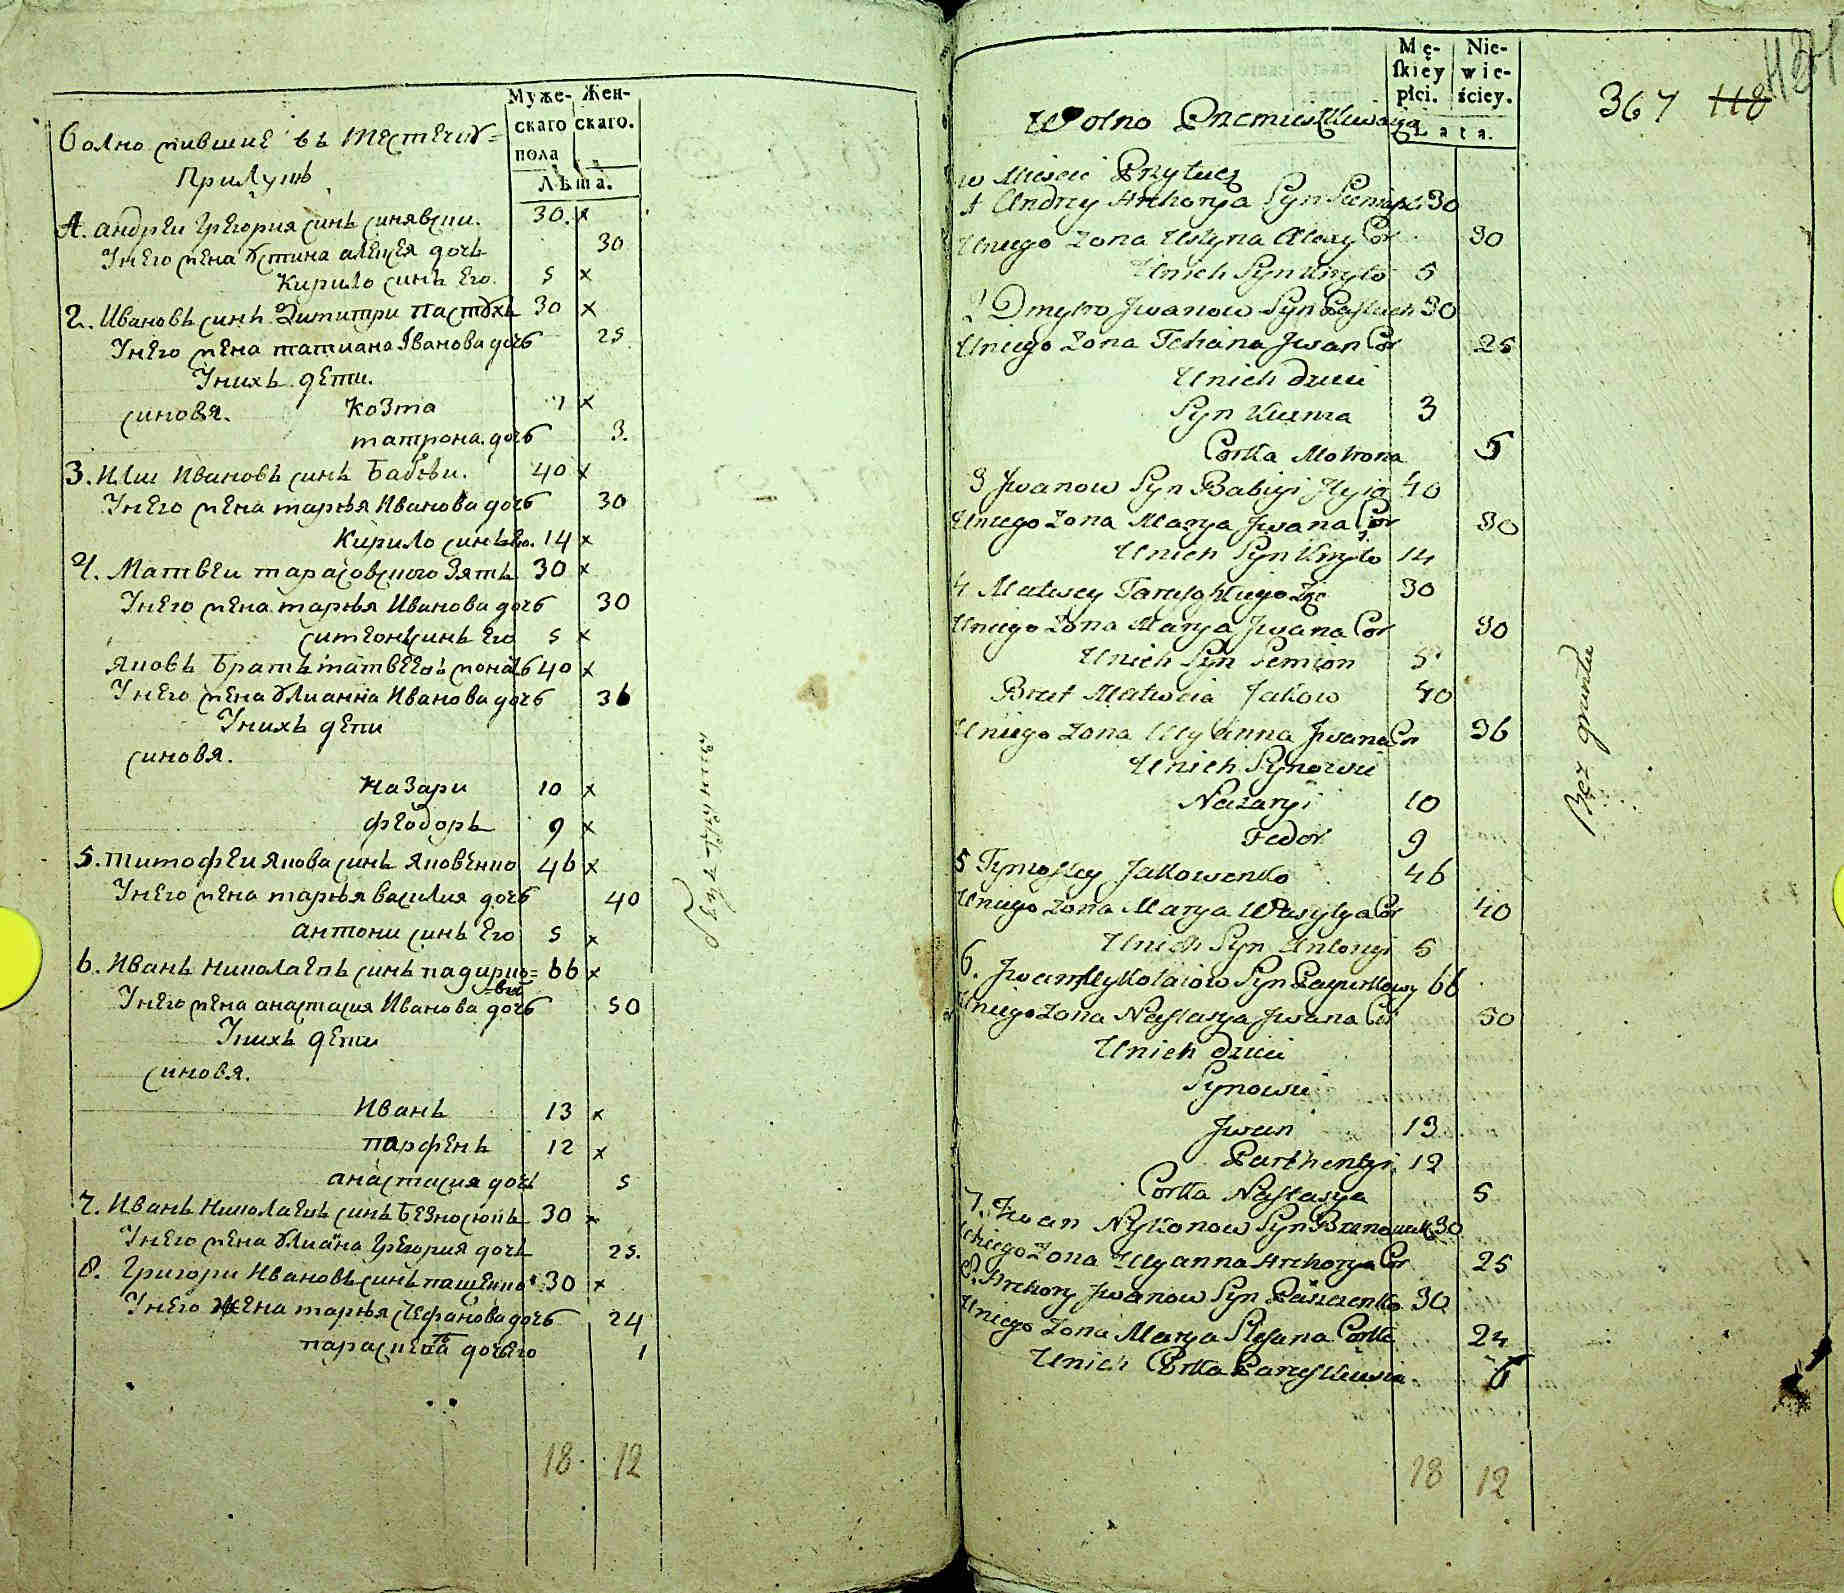 Муже- Жен-
скаго скаго.
пола
Лѣта.
Волно жившие въ местечку
Прилуцѣ
1. андреи Григория синъ синявски. 30. x
Унего жена Устина алексея дочъ 30
Кирило синъ Его. 5 x
2. Ивановъ синъ Димитри пастухъ 30 x
Унего жена татиана Иванова дочь 25
Унихъ дети.
синовя. Козма 1 x
матрона дочь 3.
3. Или Ивановъ синъ Бабѣи. 40 x
Унего жена марья Иванова дочь 30
Кирило синъ Его. 14 x
4. Матвеи тарасовского Зять 30 x
Унего жена марья Иванова дочь 30
симеонъ синъ Его 5 x
яковъ братъ матвеевъ 40 x
Унего жена Улианна Иванова дочь 36
Унихъ дети
синовя.
Назари 10 x
феодоръ 9 x
5. тимофеи якова синъ яковенко 46 x
Унего жена марья василия дочь 40
антони синъ Его 5 x
6. Иванъ николаевъ синъ 66 x
Унего жена анастасия Иванова дочь 50
Унихъ дети
синовя.
Иванъ 13 x
парфенъ 12 x
анастасия дочь 5
7. Иванъ николаевъ синъ 30 x
Унего жена Улиана Григория дочъ 25.
8. Григори Ивановъ синъ пащенко 30 x
Унего жена марья стефанова дочь 24
параскева дочь Его 1
18. 12
Mę- Nie-
skiey wie-
płci. ściey.
Lata.
367 118
Wolno Pzemieszkiwaią
w Mieście Przyłuce
1 Andrzy Hrehorya Syn 30
Uniego Zona Ustyna Alexy Cor 30
Unich Syn Kiryło 5
2 Dmytro Jwanow Syn Pastuch 30
Uniego Zona Tetiana Jwan Cor 25
Unich dzieci
Syn Kuzma 3
Corka Motrona 5
3 Jwanow Syn Babiyi Ilyia 40
Uniego Zona Marya Jwana Cor 30
Unich Syn Kiryło 14
4. Matwey Tarasowskiego Zięć 30
Uniego Zona Marya Jwana Cor 30
Unich Syn Semion 5
Brat Matweia Jakow 40
Uniego Zona Ulyanna Jwana Cor 36
Unich Synowie
Nazaryi 10
Fedor 9
5 Tymofiey Jakowenko 46
Uniego Zona Marya Wasylya Cor 40
Unich Syn Antonyi 5
6. Jwan Mykołaiow Syn 66
Uniego Zona Nastasya Jwana Cor 50
Unich dzieci
Synowie
Jwan 13
Parthentyi 12
Corka Nastasya 5
7. Jwan Nykonow Syn 30
Uniego Zona Ulyanna Hrehorya Cor 25
8. Hrehory Jwanow Syn Paszczenko 30
Uniego Zona Marya Stefana Corka 24
Unich Corka Paraskiewia 6
Bez gruntu
18 12